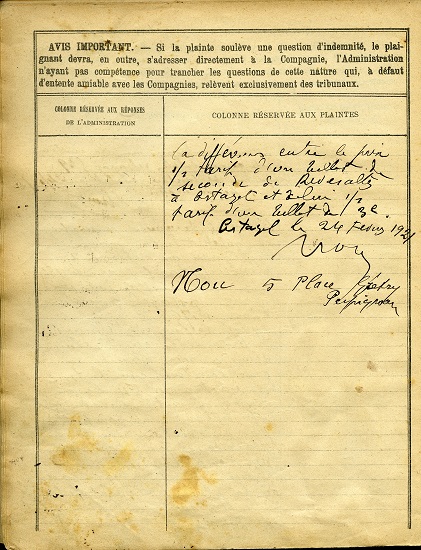 AVIS IMPORTANT. — Si la plainte soulève une question d'indemnité, le plai-
gnant devra, en outre, s'adresser directement à la Compagnie, l'Administration
n'ayant pas compétence pour trancher les questions de cette nature qui, à défaut
d'entente amiable avec les Compagnies, relèvent exclusivement des tribunaux.
COLONNE RÉSERVÉE AUX RÉPONSES
DE L'ADMINISTRATION
COLONNE RÉSERVÉE AUX PLAINTES
la différence entre le prix
1/2 tarif d'un billet de
seconde de Rivesaltes
à Estagel et celui 1/2
tarif d'un billet de 3e.
Estagel le 24 Février
5 Place Grétry
Perpignan